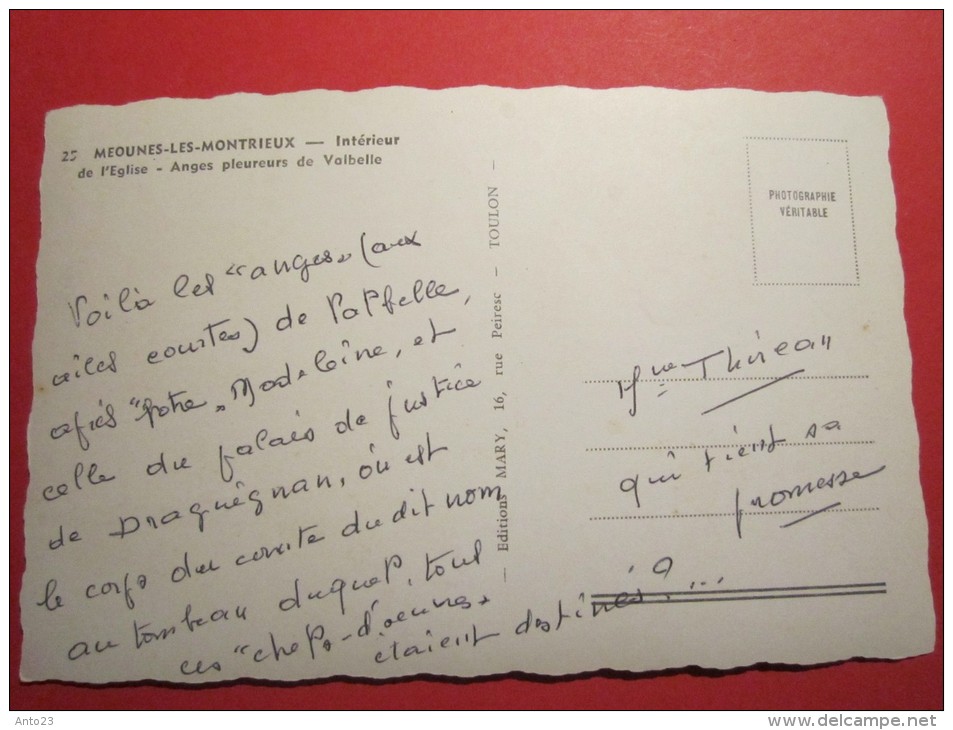 25 MEOUNES-LES-MONTRIEUX — Intérieur
de l'Eglise - Anges pleureurs de Valbelle
Voilà les "anges" (aux
ailes courtes) de Valbelle,
après "notre" Madeleine, et
celle du palais de justice
de Draguignan, où est
le corps du comte du dit nom
au tombeau duquel, tous
ces "chefs-d'œuvre"
étaient destinés?...
— Editions MARY, 16, rue Peiresc — TOULON —
PHOTOGRAPHIE
VÉRITABLE
Mme Thireau
qui tient sa
promesse
Anto23
www.delcampe.net